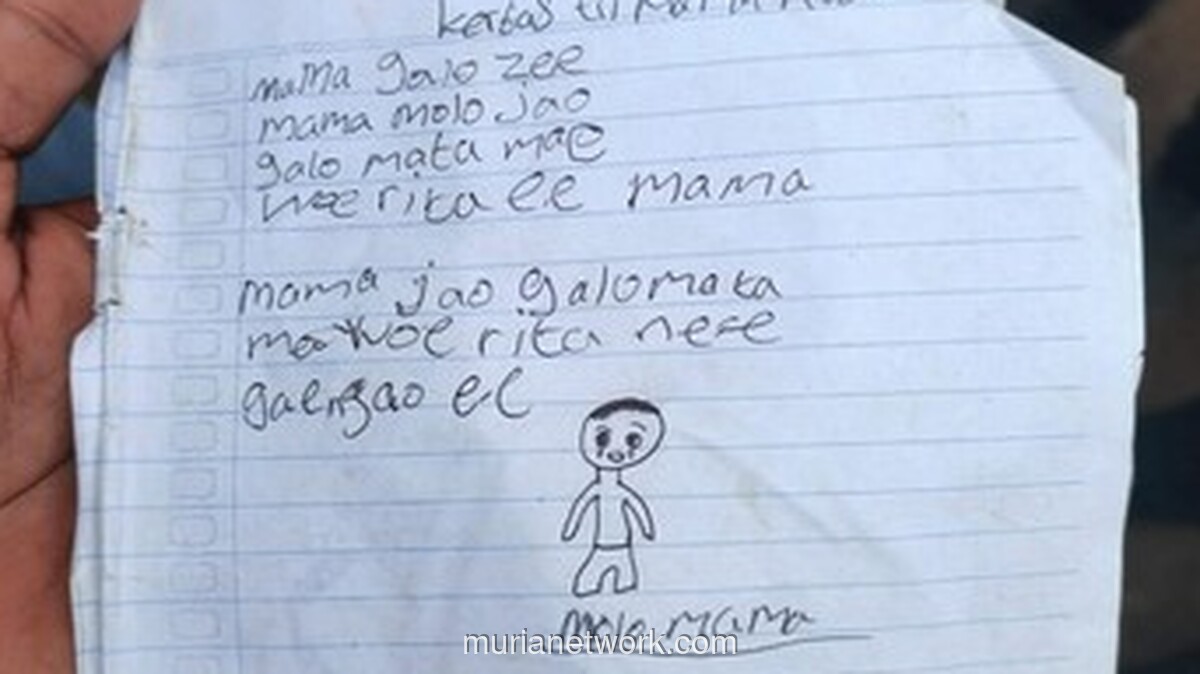 kertas tii mama
mama galo zee
mama molo jao
galo mata mae
woe rita ee mama
mama jao galo mata
mae woe rita ne'e
gae ngao ee
molo mama
murianetwork.com